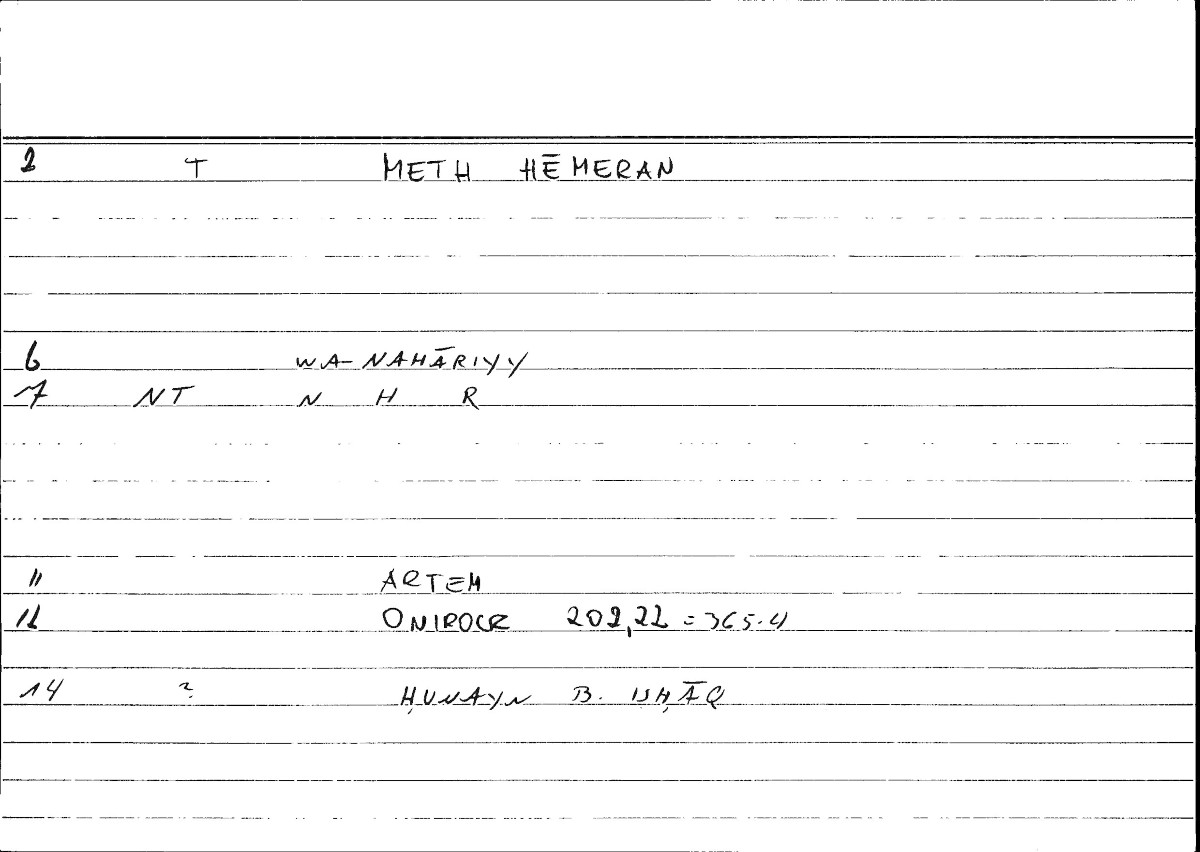 2 T METH HĒMERAN
6 WA-NAHĀRIYY
7 NT N H R
11 ARTEM
12 ONIROCR 202,22 = 365.4
14 ? ḤUNAYN B. ISḤĀQ